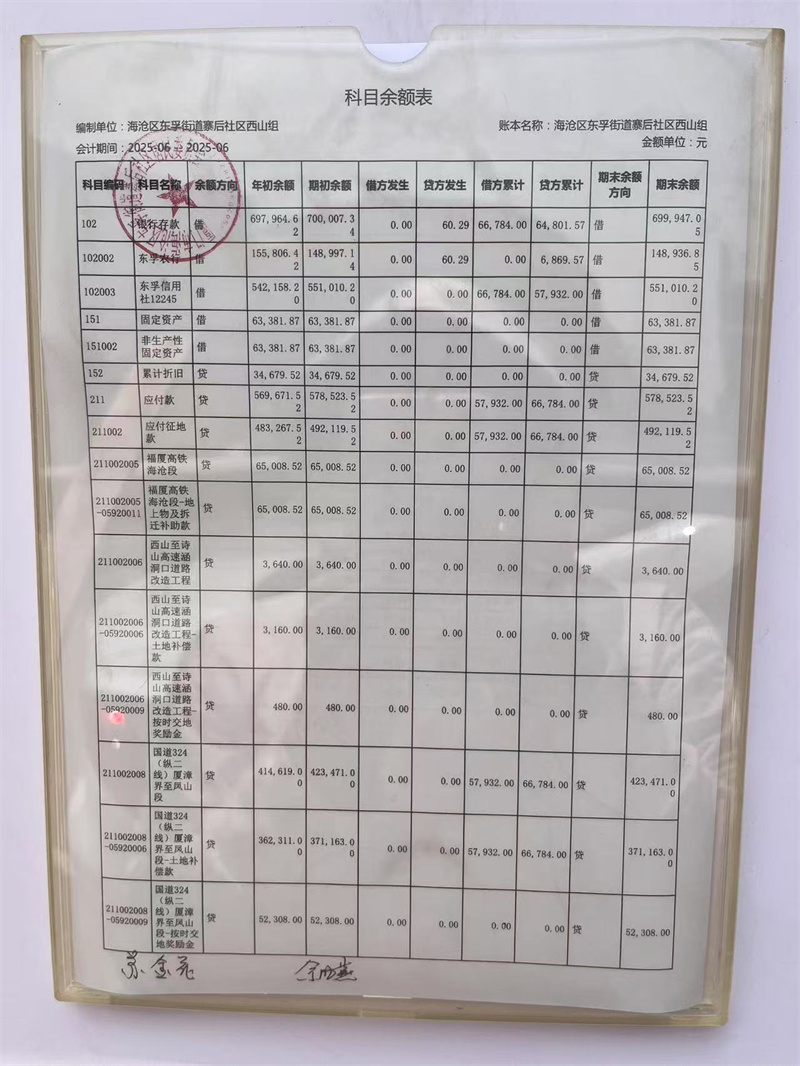 科目余额表
编制单位：海沧区东孚街道寨后社区西山组 账本名称：海沧区东孚街道寨后社区西山组
会计期间：2025-06 -- 2025-06 金额单位：元
科目编码 科目名称 余额方向 年初余额 期初余额 借方发生 贷方发生 借方累计 贷方累计 期末余额方向 期末余额
102 银行存款 借 697,964.62 700,007.34 0.00 60.29 66,784.00 64,801.57 借 699,947.05
102002 东孚农行 借 155,806.42 148,997.14 0.00 60.29 0.00 6,869.57 借 148,936.85
102003 东孚信用社12245 借 542,158.20 551,010.20 0.00 0.00 66,784.00 57,932.00 借 551,010.20
151 固定资产 借 63,381.87 63,381.87 0.00 0.00 0.00 0.00 借 63,381.87
151002 非生产性固定资产 借 63,381.87 63,381.87 0.00 0.00 0.00 0.00 借 63,381.87
152 累计折旧 贷 34,679.52 34,679.52 0.00 0.00 0.00 0.00 贷 34,679.52
211 应付款 贷 569,671.52 578,523.52 0.00 0.00 57,932.00 66,784.00 贷 578,523.52
211002 应付征地款 贷 483,267.52 492,119.52 0.00 0.00 57,932.00 66,784.00 贷 492,119.52
211002005 福厦高铁海沧段 贷 65,008.52 65,008.52 0.00 0.00 0.00 0.00 贷 65,008.52
211002005-05920011 福厦高铁海沧段-地上物及拆迁补助款 贷 65,008.52 65,008.52 0.00 0.00 0.00 0.00 贷 65,008.52
211002006 西山至诗山高速涵洞口道路改造工程 贷 3,640.00 3,640.00 0.00 0.00 0.00 0.00 贷 3,640.00
211002006-05920006 西山至诗山高速涵洞口道路改造工程-土地补偿款 贷 3,160.00 3,160.00 0.00 0.00 0.00 0.00 贷 3,160.00
211002006-05920009 西山至诗山高速涵洞口道路改造工程-按时交地奖励金 贷 480.00 480.00 0.00 0.00 0.00 0.00 贷 480.00
211002008 国道324（纵二线）厦漳界至凤山段 贷 414,619.00 423,471.00 0.00 0.00 57,932.00 66,784.00 贷 423,471.00
211002008-05920006 国道324（纵二线）厦漳界至凤山段-土地补偿款 贷 362,311.00 371,163.00 0.00 0.00 57,932.00 66,784.00 贷 371,163.00
211002008-05920009 国道324（纵二线）厦漳界至凤山段-按时交地奖励金 贷 52,308.00 52,308.00 0.00 0.00 0.00 0.00 贷 52,308.00